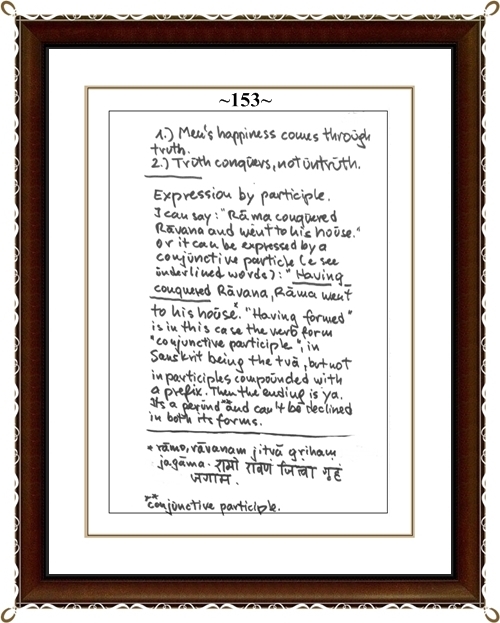 ~153~
1.) Men's happiness comes through
truth.
2.) Truth conquers, not untruth.
Expression by participle.
I can say: "Rāma conquered
Rāvana and went to his house."
Or it can be expressed by a
conjunctive particle (e see
underlined words): "Having
conquered Rāvana, Rāma went
to his house*. "Having formed"
is in this case the verb form
"conjunctive participle", in
Sanskrit being the tvā, but not
in participles compounded with
a prefix. Then the ending is ya.
Its a gerund** and can't be declined
in both its forms.
* rāmo, rāvanam jitvā griham
jagāma. रामो रावणं जित्वा गृहं
जगाम.
** conjunctive participle.